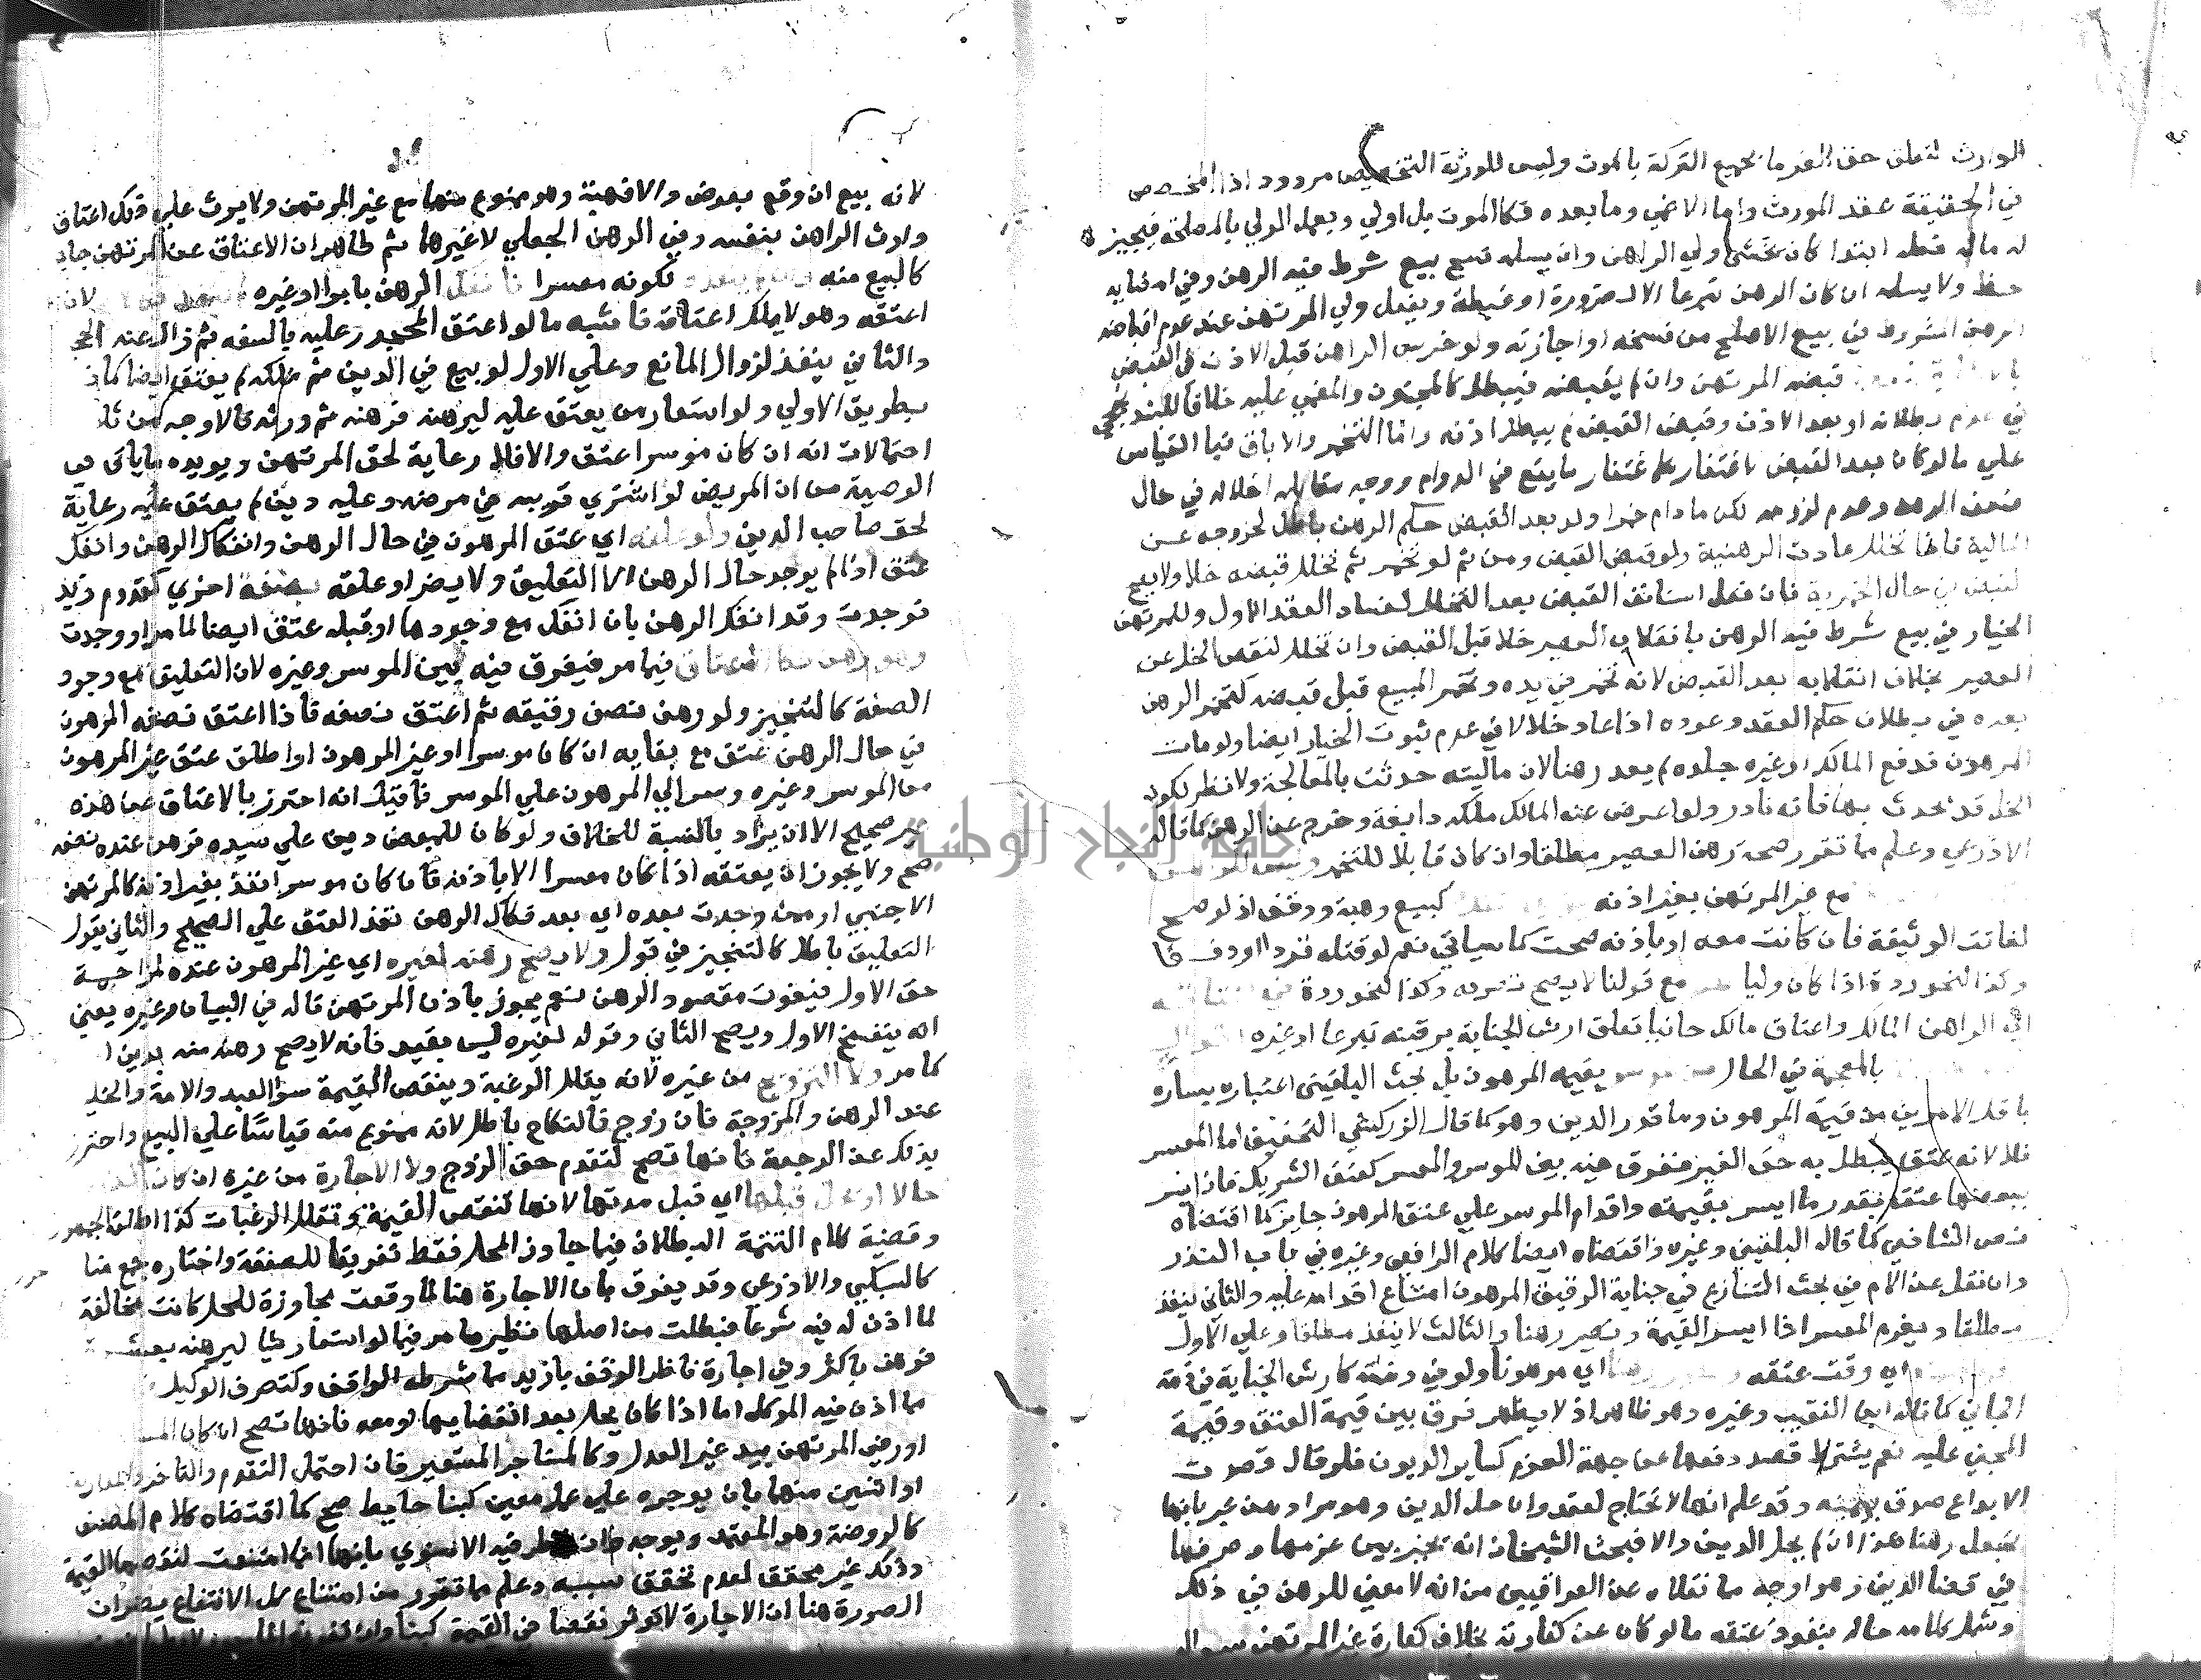 الوارث لتعلق حق الغرما بجميع التركة بالموت وليس للورثة التخصيص مردود اذ المخصص
في الحقيقة عقد المورث واما الاغمي وما بعده فكالموت بل اولي ويعمل الولي بالمصلحة فيجيز
له ماله فعله ابتدا كان خشي ولي الراهن وان يسلمه فسخ بيع شرط فيه الرهن وفي امضايه
حظ ولا يسلمه ان كان الرهن تبرعا الا لضرورة او غبطة ويفعل ولي المرتهن عند عدم اقباضه
الرهن المشروط في بيع الاصلح من فسخه او اجازته ولو خرس الراهن قبل الاذن في القبض
قبضه المرتهن وان لم يقبضه فيبطل كالمجنون والمغمي عليه خلافا للبندنيجي
في عدم بطلانه او بعد الاذن وقبض القبض لم يبطل اذنه واما التخمر والاباق فبا القياس
علي ما لو كان بعد القبض لاغتفار ما يقع في الدوام ووجه مقابله اختلاله في حال
ضعف الرهن وعدم لزومه لكن ما دام خمرا ولو بعد القبض حكم الرهن باطل لخروجه عن
المالية فاذا تخلل عادت الرهنية ولو قبض القبض ومن ثم لو تخمر ثم تخلل قبضه خلا ولا يصح
القبض في حال الخمرية فان فعل استانف القبض بعد التخلل لفساد العقد الاول وللمرتهن
الخيار في بيع شرط فيه الرهن بانقلاب العصير خلا قبل القبض وان تخلل لنقص الخل عن
العصير بخلاف انقلابه بعد القبض لانه تخمر في يده وتخمر المبيع قبل قبضه كتخمر الرهن
بعده في بطلان حكم العقد وعوده اذا عاد خلا لا في عدم ثبوت الخيار ايضا ولو مات
المرهون فدفع المالك او غيره جلده لم يعد رهنا لان ماليته حدثت بالمعالجة ولا نظر لكون
الخل قد يحدث بها فانه نادر ولو اعرض عنه المالك ملكه دابغه وخرج عن الرهن كما قاله
الاذرعي وعلم مما تقرر صحة رهن العصير مطلقا وان كان قابلا للتخمر وليس للراهن
مع غير المرتهن بغير اذنه كبيع وهبة ووقف اذ لو صح
لفاتت الوثيقة فان كانت معه او باذنه صحت كما سياتي نعم لو قتله قودا او دفعا
وكذا لنحو ردة اذا كان واليا مع قولنا لا يصح تصرفه وكذا لنحو ردة في
اي الراهن المالك واعتاق مالك جانيا تعلق ارش الجناية برقبته تبرعا او غيره
بالمعجمة في الحال من موسر بقيمة المرهون بل بحث البلقيني اعتبار يساره
باقل الامرين من قيمة المرهون وما قدر الدين وهو كما قال الزركشي التحقيق اما المعسر
فلا لانه عتق يبطل به حق الغير ففرق فيه بين الموسر والمعسر كعتق الشريك فاذا ايسر
ببعضها عتقه بقدر ما ايسر بقيمته واقدام الموسر علي عتق المرهون جايز كما اقتضاه
نص الشافعي كما قاله البلقيني وغيره واقتضاه ايضا كلام الرافعي وغيره في باب النذر
وان نقل عن الام في بحث التنازع في جناية الرقيق المرهون امتناع اقدامه عليه والثاني ينفذ
مطلقا ويغرم المعسر اذا ايسر القيمة وتصير رهنا والثالث لا ينفذ مطلقا وعلي الاول
اي وقت عتقه وتصير رهنا اي مرهونا ولو في ذمته كارش الجناية في ذمة
الجاني كما قاله ابن النقيب وغيره وهو ظاهر اذ لا يظهر فرق بين قيمة العتق وقيمة
المجني عليه نعم يشترط قصد دفعها عن جهة الغرم كساير الديون فلو قال قصدت
الايداع صدق بيمينه وقد علم انها لا تحتاج لعقد وان حل الدين وهو مراد من عبر بانها
تجعل رهنا هذا ان لم يحل الدين والا فبحث الشيخان انه تخير بين غرمها وصرفها
في قضا الدين وهو اوجه مما نقلاه عن العراقيين من انه لا معني للرهن في ذلك
وشمل كلامه حاله بنفوذ عتقه ما لو كان عن كفارته بخلاف كفارة غير المرتهن بسوال
لانه بيع ان وقع بعوض والا فهبة وهو ممنوع منها مع غير المرتهن ولا يورث علي ذلك اعتاق
وارث الراهن بنفسه وفي الرهن الجعلي لا غيرها ثم ظاهر ان الاعتاق عن المرتهن جايز
كالبيع منه لكونه معسرا فانفك الرهن بابرا او غيره لان
اعتقه وهو لا يملك اعتاقه فاشبه ما لو اعتق المحجور عليه بالسفه ثم زال عنه الحجر
والثاني ينفذ لزوال المانع وعلي الاول لو بيع في الدين ثم ملكه لم يعتق ايضا كما في
بطريق الاولي ولو استعار من يعتق عليه ليرهنه فرهنه ثم ورثه فالاوجه من ثلا
احتمالات انه ان كان موسرا عتق والا فلا رعاية لحق المرتهن ويويده ما ياتي في
الوصية من ان المريض لو اشتري قريبه في مرضه وعليه دين لم يعتق عليه رعاية
لحق صاحب الدين ولو علقه اي عتق المرهون في حال الرهن وانفكاك الرهن وانفك
عتق اذ لم يوجد حال الرهن الا التعليق ولا يضر او علقه بصفة اخري كقدوم زيد
فوجدت وقد انفك الرهن بان انفك مع وجودها او قبله عتق ايضا لما مر او وجدت
وهو رهن فكالاعتاق فيما مر فيفرق فيه بين الموسر وغيره لان التعليق مع وجود
الصفة كالتنجيز ولو رهن نصف رقيقه ثم اعتق نصفه فاذا اعتق نصفه المرهون
في حال الرهن عتق مع بقايه ان كان موسرا او غير المرهون او اطلق عتق غير المرهون
من الموسر وغيره وسري الي المرهون علي الموسر فاقيل انه احترز بالاعتاق عن هذه
غير صحيح الا ان يراد بالنسبة للخلاف ولو كان للمبعض دين علي سيده فرهن عنده نصفه
صح ولا يجوز ان يعتقه اذا كان معسرا الا باذنه فان كان موسرا نفذ بغير اذنه كالمرتهن
الاجنبي او وجدت بعده اي بعد فكاك الرهن نفذ العتق علي الصحيح والثاني يقول
التعليق باطل كالتنجيز في قول ولا يصح رهنه لغيره اي غير المرهون عنده لمزاحمة
حق الاول فيفوت مقصود الرهن نعم يجوز باذن المرتهن قاله في البيان وغيره يعني
انه ينفسخ الاول ويصح الثاني وقوله لغيره ليس بقيد فانه لا يصح رهنه منه بدين ا
كما مر ولا التزويج من غيره لانه يقلل الرغبة وينقص القيمة سوا العبد والامة والخلية
عند الرهن والمزوجة فان زوج فالنكاح باطل لانه ممنوع منه قياسا علي البيع واحترز
بذلك عن الرجعة فانها تصح لتقدم حق الزوج ولا الاجارة من غيره ان كان
حالا او يحل قبلها اي قبل مدتها لانها تنقص القيمة وتقلل الرغبات كذا اطلقه الجمهور
وقضية كلام التتمة البطلان فيما جاوز المحل فقط تفريقا للصفقة واختاره جمع هنا
كالسبكي والاذرعي وقد يفرق بان الاجارة هنا لما وقعت مجاوزة للمحل كانت مخالفة
لما اذن له فيه شرعا فبطلت من اصلها نظير ما مر فيما لو استعار شيا ليرهنه بعشرة
فرهن باكثر وفي اجارة ناظر الوقف بازيد مما شرطه الواقف وكتصرف الوكيل
مما اذن فيه الموكل اما اذا كان يحل بعد انقضايها او معه فانها تصح ان كان المستاجر
او رضي المرتهن بيد غير العدل وكالمستاجر المستعير فان احتمل التقدم والتاخر والمقارنة
او اثنين منها بان يوجره علي عمل معين كبنا حايط صح كما اقتضاه كلام المصنف
كالروضة وهو المعتمد ويوجه وان نظر فيه الاسنوي بانها انما امتنعت لنقصها القيمة
وذلك غير محقق لعدم تحقق سببه وعلم مما تقرر من امتناع كل الانتفاع يضران
الصورة هنا ان الاجارة لا توثر نقصا في القيمة